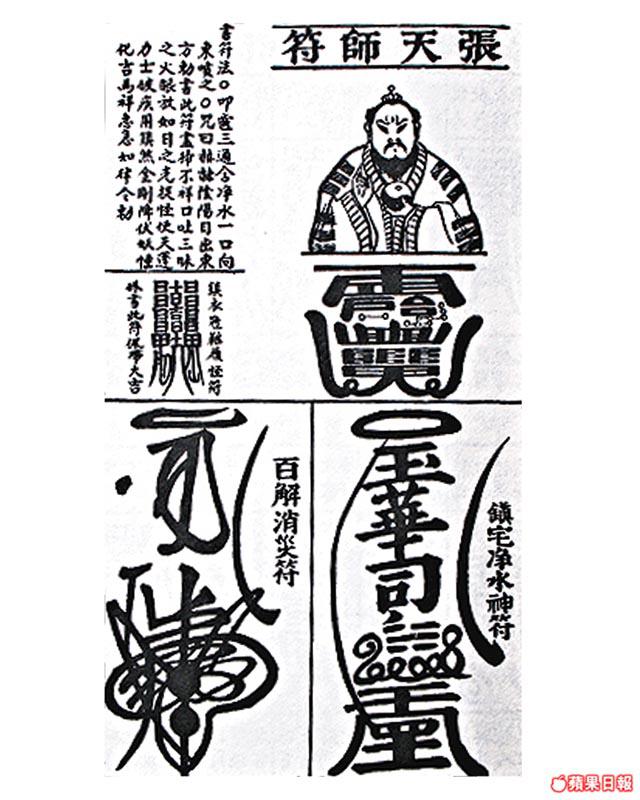 張天師符
書符法○叩齒三通含净水一口向
東噴之○咒曰赫赫陰陽日出東
方勅書此符盡掃不祥口吐三昧
之火眼放如日之光捉怪使天蓬
力士破疾用鎮煞金剛降伏妖怪
化吉為祥急急如律令勅
鎮衣冠鞋履怪符
硃書此符佩帶大吉
鎮宅净水神符
玉華司
百解消災符
蘋果日報